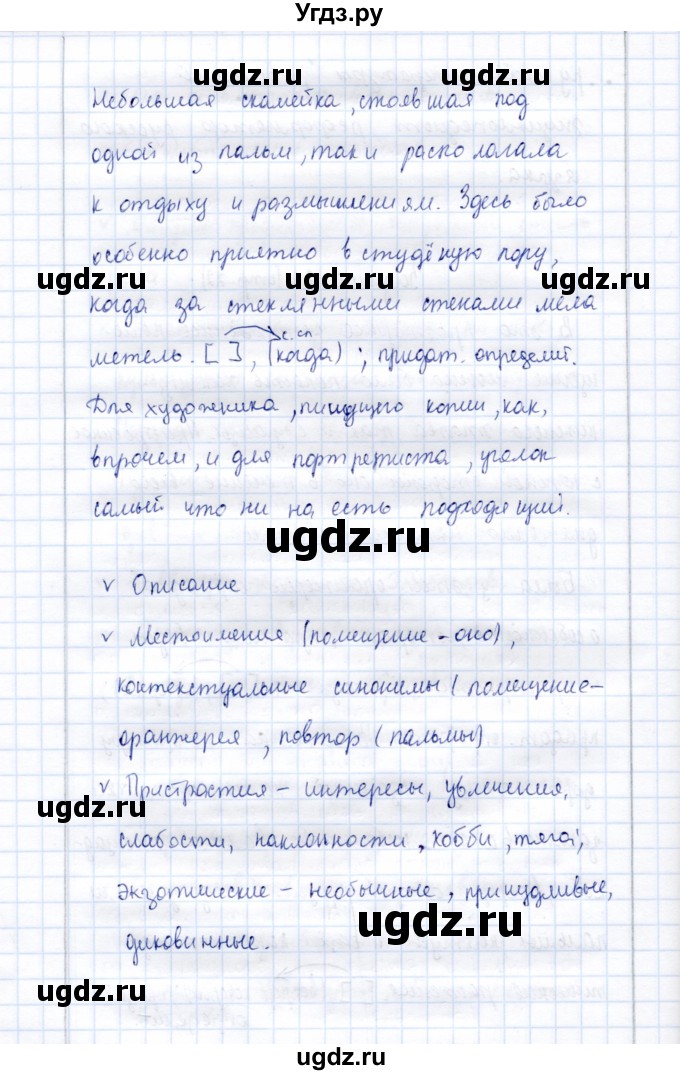 Угдз.ру
ugdz.ru ugdz.ru
Небольшая скамейка, стоявшая под
одной из пальм, так и располагала
к отдыху и размышлениям. Здесь было
особенно приятно в студёную пору,
ugdz.ru ugdz.ru
когда за стеклянными стенами мела
с.сп
метель. [ ], (когда); придат. определит.
Для художника, пишущего копии, как,
впрочем, и для портретиста, уголок
самый что ни на есть подходящий.
ugdz.ru
v Описание
v Местоимения (помещение - оно),
контекстуальные синонимы (помещение-
оранжерея; повтор (пальмы)
v Пристрастия - интересы, увлечения,
ugdz.ru
слабости, наклонности, хобби, тяга;
экзотические - необычные, причудливые,
ugdz.ru
диковинные.
ugdz.ru ugdz.ru
ugdz.ru